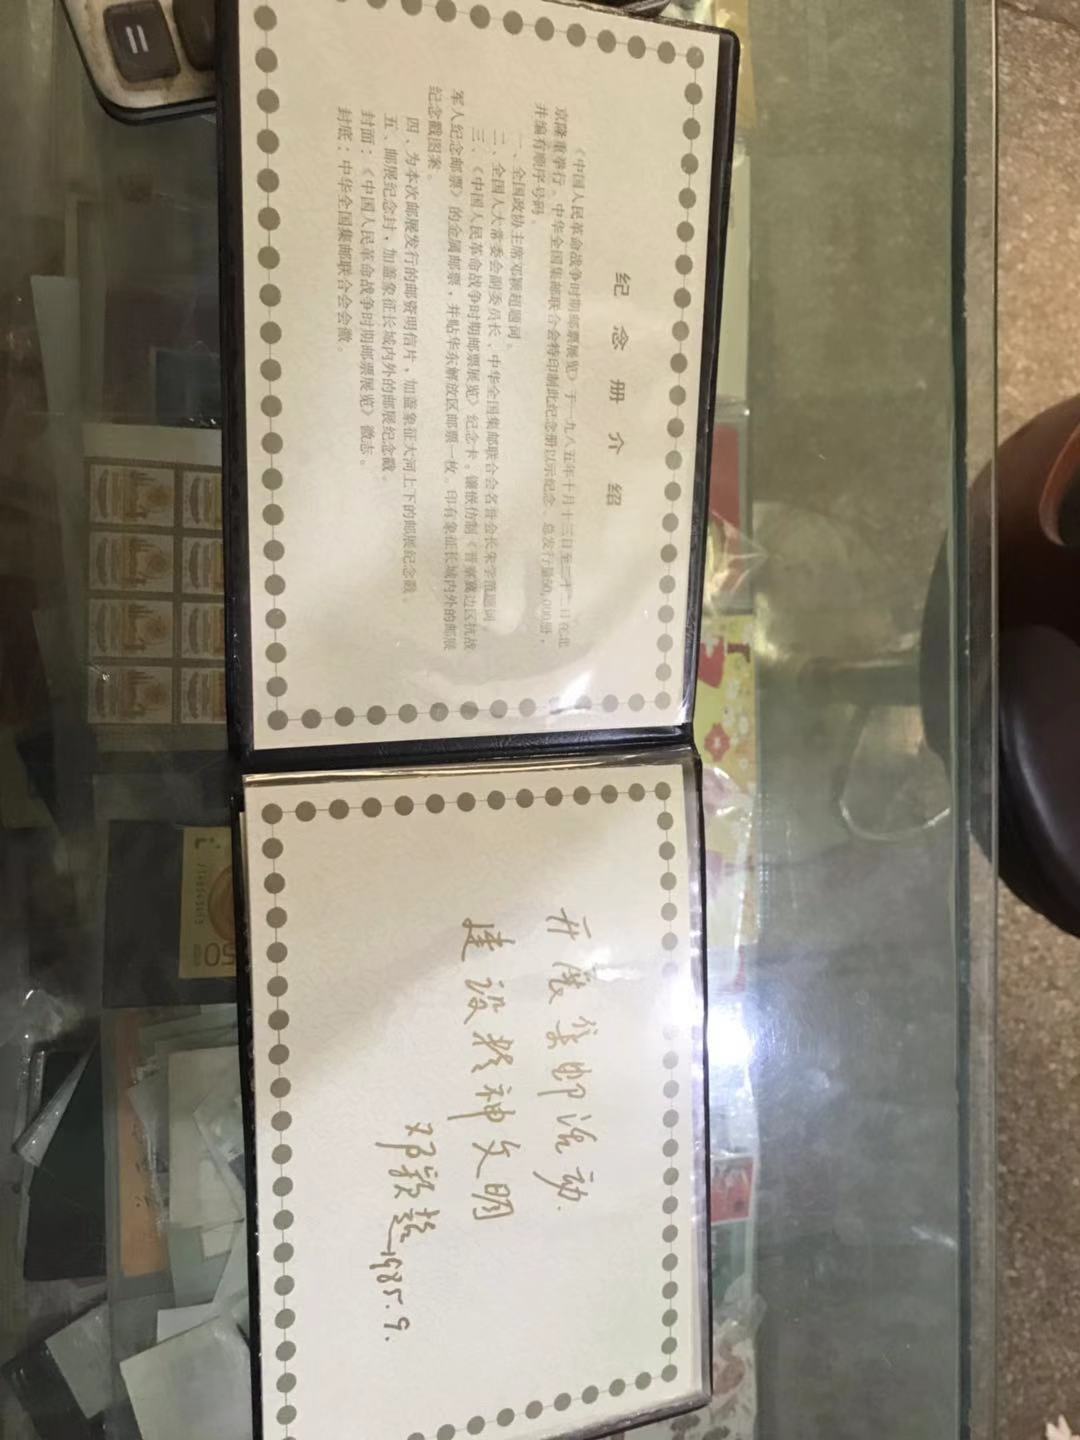 纪念册介绍
《中国人民革命战争时期邮票展览》于一九八五年十月十三日至二十二日在北
京隆重举行。中华全国集邮联合会特印制此纪念册以示纪念。总发行量60,000册，
并编有顺序号码。
一、全国政协主席邓颖超题词。
二、全国人大常委会副委员长、中华全国集邮联合会名誉会长朱学范题词。
三、《中国人民革命战争时期邮票展览》纪念卡。镶嵌仿制《晋察冀边区抗战
军人纪念邮票》的金属邮票，并贴华东解放区邮票一枚。印有象征长城内外的邮展
纪念戳图案。
四、为本次邮展发行的邮资明信片，加盖象征大河上下的邮展纪念戳。
五、邮展纪念封，加盖象征长城内外的邮展纪念戳。
封面：《中国人民革命战争时期邮票展览》徽志。
封底：中华全国集邮联合会会徽。
开展集邮活动
建设精神文明
邓颖超
1985.9.
50
=